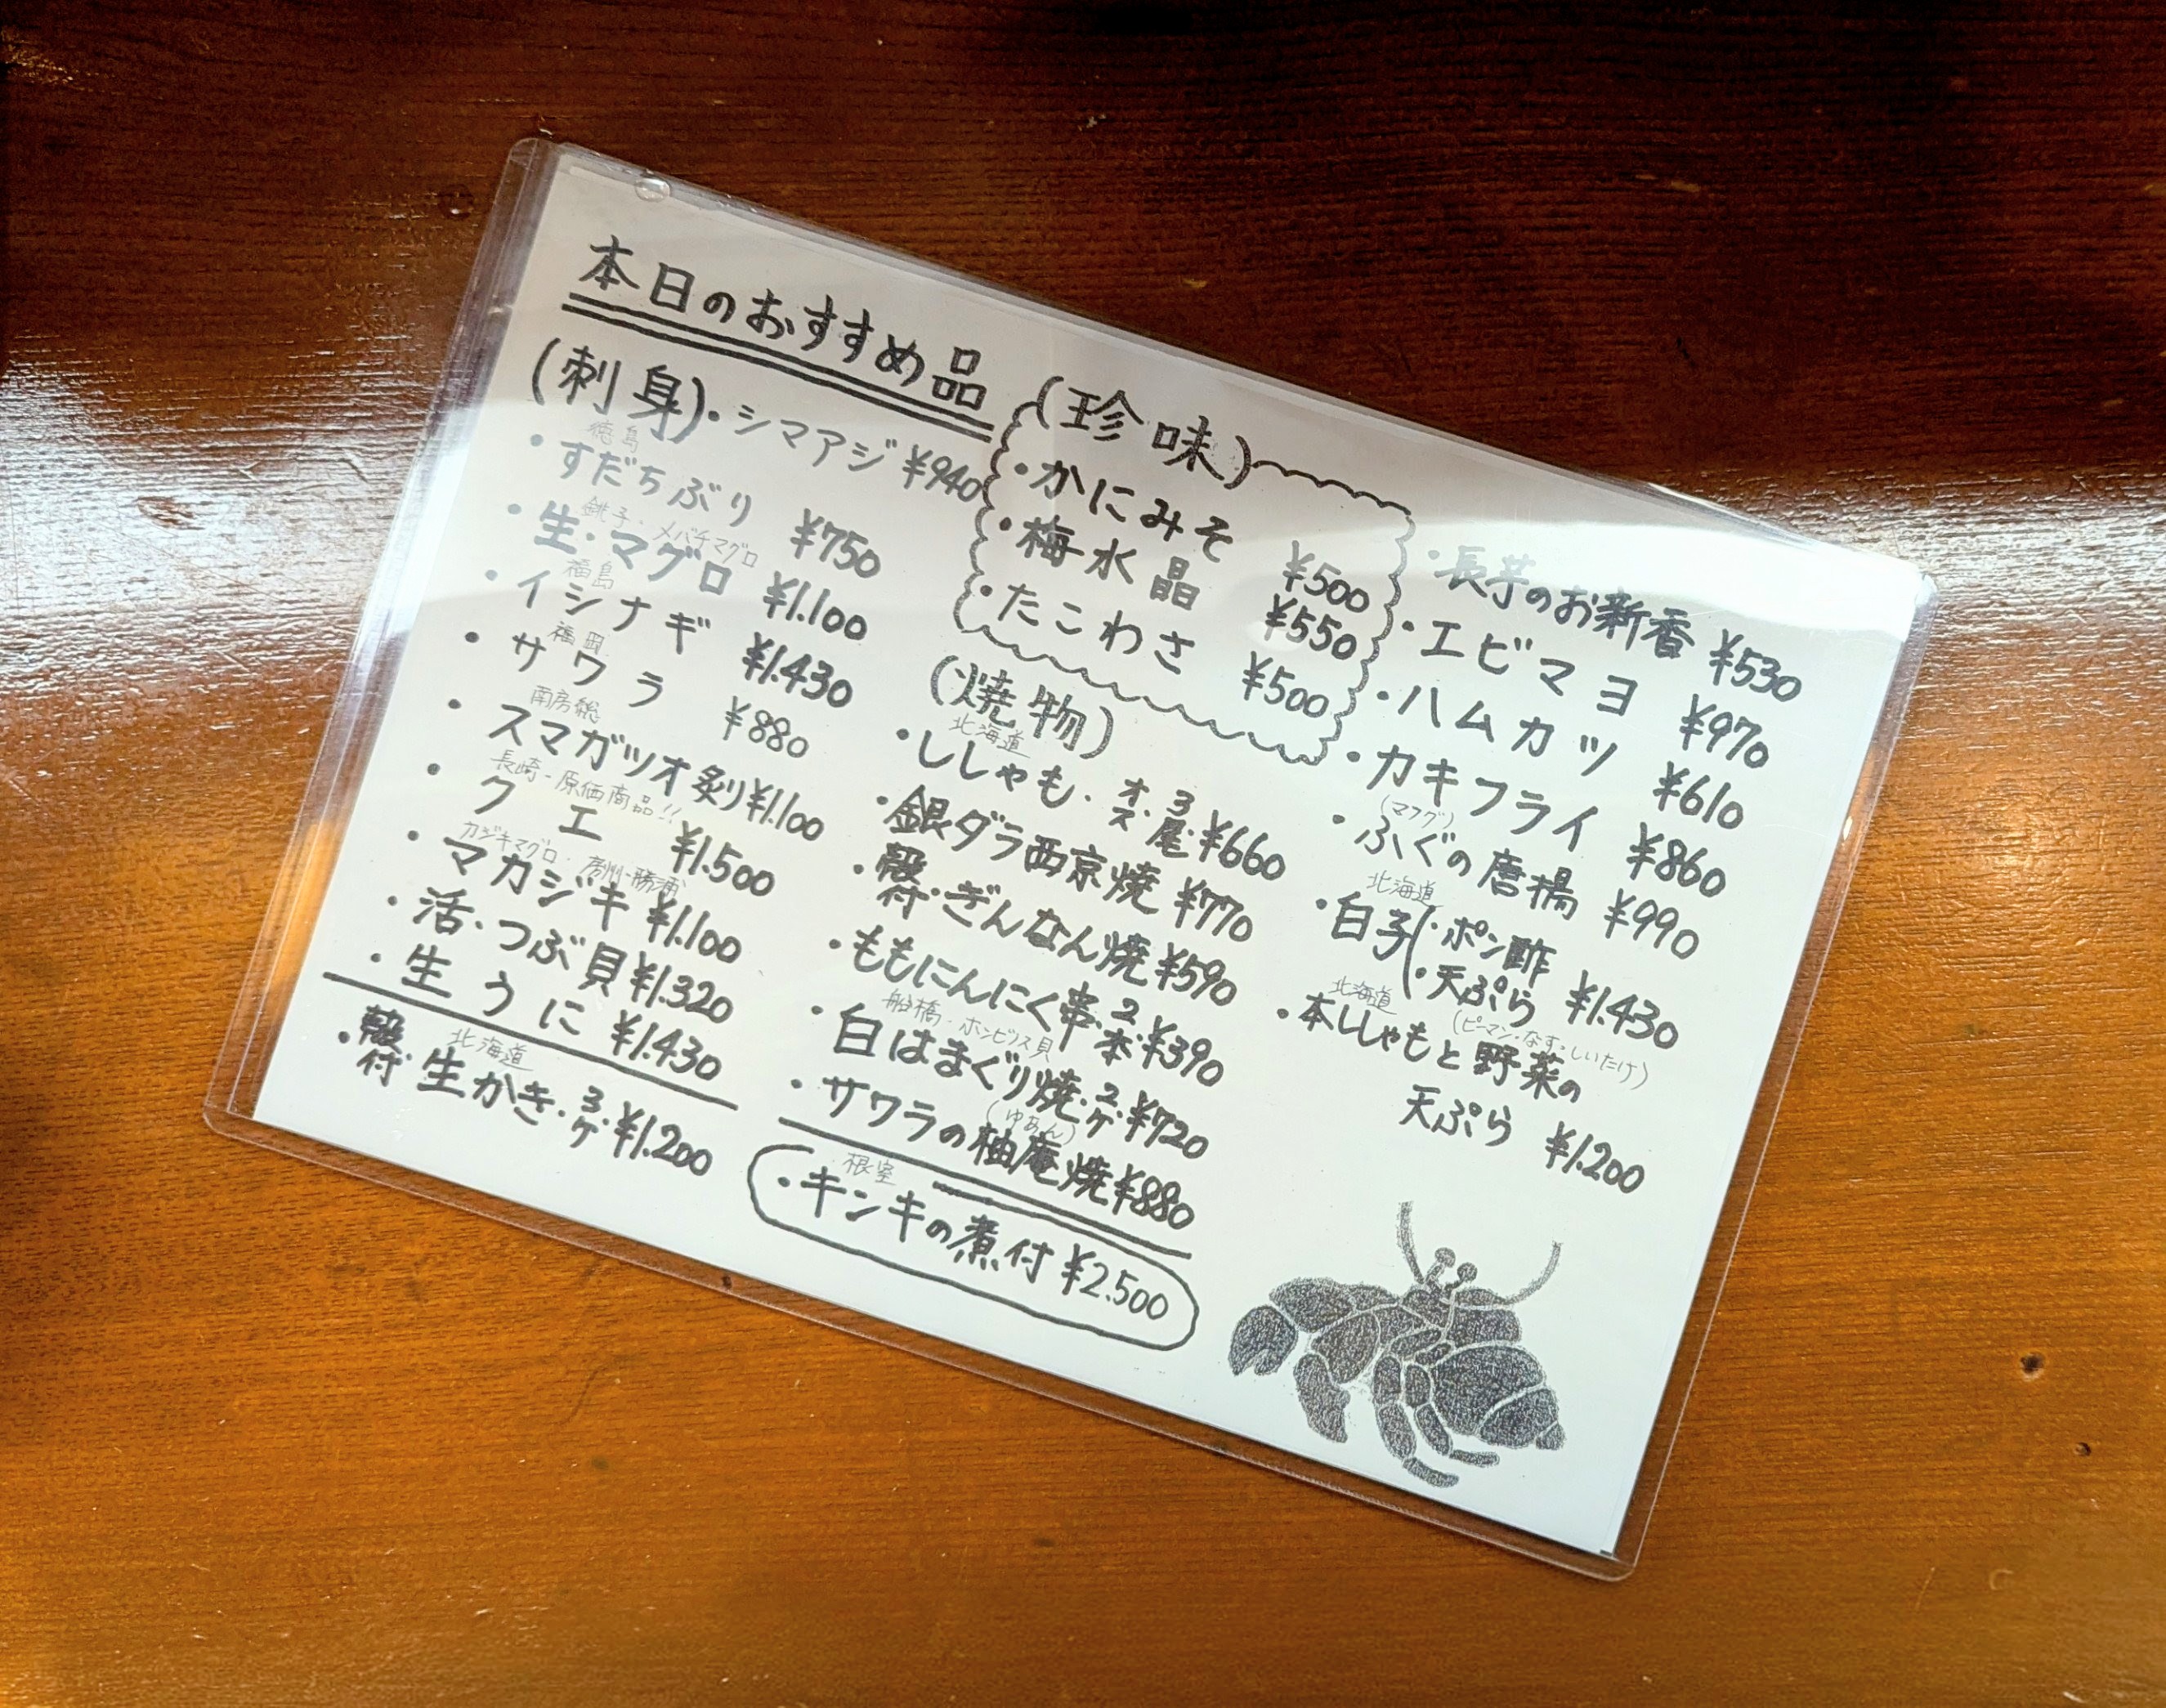 本日のおすすめ品
(刺身)・シマアジ ¥940
徳島
・すだちぶり ¥750
銚子・メバチマグロ
・生・マグロ ¥1.100
福島
・イシナギ ¥1.430
福岡
・サワラ ¥880
南房総
・スマガツオ炙り¥1.100
長崎-原価商品!!
・クエ ¥1.500
カジキマグロ・房州-勝浦
・マカジキ ¥1.100
・活・つぶ貝¥1.320
・生うに ¥1.430
北海道
・殻付 生かき・3ケ・¥1.200
(珍味)
・かにみそ ¥500
・梅水晶 ¥550
・たこわさ ¥500
(焼物)
北海道
・ししゃも・オス・3尾・¥660
・銀ダラ西京焼 ¥770
・殻付・ぎんなん焼 ¥590
・ももにんにく串・2本・¥390
船橋・ホンビノス貝
・白はまぐり焼・2ケ・¥720
(ゆあん)
・サワラの柚庵焼¥880
根室
・キンキの煮付 ¥2.500
・長芋のお新香 ¥530
・エビマヨ ¥970
・ハムカツ ¥610
・カキフライ ¥860
(マフグ)
・ふぐの唐揚 ¥990
北海道
・白子(・ポン酢
・天ぷら ¥1.430
北海道
(ピーマン・なす・しいたけ)
・本ししゃもと野菜の
天ぷら ¥1.200